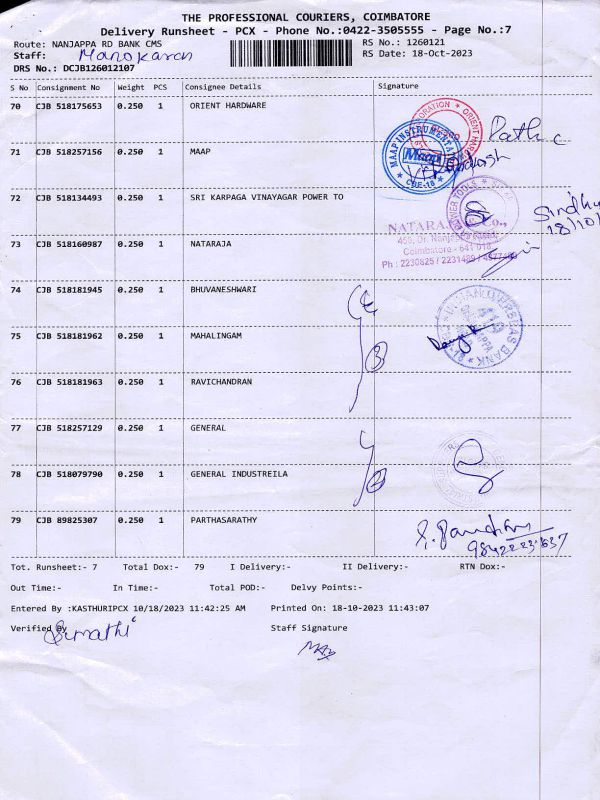 THE PROFESSIONAL COURIERS, COIMBATORE
Delivery Runsheet - PCX - Phone No.:0422-3505555 - Page No.:7
Route: NANJAPPA RD BANK CMS RS No.: 1260121
Staff: Manokaran RS Date: 18-Oct-2023
DRS No.: DCJB126012107
S No Consignment No Weight PCS Consignee Details Signature
70 CJB 518175653 0.250 1 ORIENT HARDWARE
71 CJB 518257156 0.250 1 MAAP
MAAP INSTRUMENTA
Maap
CBE-18
72 CJB 518134493 0.250 1 SRI KARPAGA VINAYAGAR POWER TO
Sindhu
18/10/
NATARAJA & Co.,
459, Dr. Nanjappa Road,
Coimbatore - 641 018
73 CJB 518160987 0.250 1 NATARAJA
Ph : 2230825 / 2231489 / 4377489
74 CJB 518181945 0.250 1 BHUVANESHWARI
INDIAN OVERSEAS BANK
75 CJB 518181962 0.250 1 MAHALINGAM
76 CJB 518181963 0.250 1 RAVICHANDRAN
77 CJB 518257129 0.250 1 GENERAL
78 CJB 518079790 0.250 1 GENERAL INDUSTREILA
79 CJB 89825307 0.250 1 PARTHASARATHY
Tot. Runsheet:- 7 Total Dox:- 79 I Delivery:- II Delivery:- RTN Dox:-
Out Time:- In Time:- Total POD:- Delvy Points:-
Entered By :KASTHURIPCX 10/18/2023 11:42:25 AM Printed On: 18-10-2023 11:43:07
Verified By Staff Signature
Sumathi